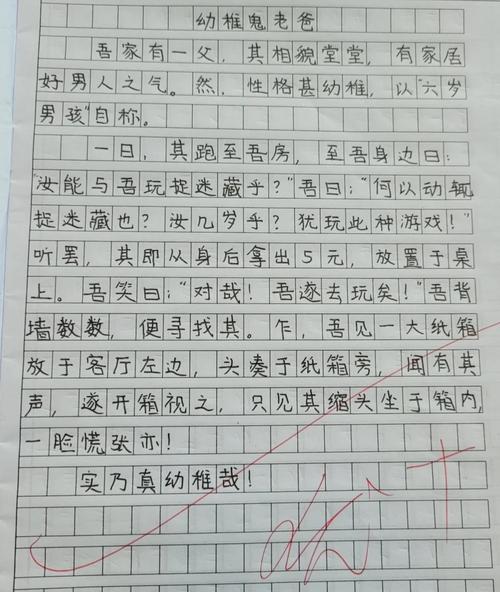 幼稚鬼老爸
吾家有一父，其相貌堂堂，有家居
好男人之气。然，性格甚幼稚，以“六岁
男孩”自称。
一日，其跑至吾房，至吾身边曰：
“汝能与吾玩捉迷藏乎？”吾曰：“何以动辄
捉迷藏也？汝几岁乎？犹玩此种游戏！”
听罢，其即从身后拿出5元，放置于桌
上。吾笑曰：“对哉！吾遂去玩矣！”吾背
墙数数，便寻找其。乍，吾见一大纸箱
放于客厅左边，头奏于纸箱旁，闻有其
声，遂开箱视之，只见其缩头坐于箱内，
一脸慌张亦！
实乃真幼稚哉！